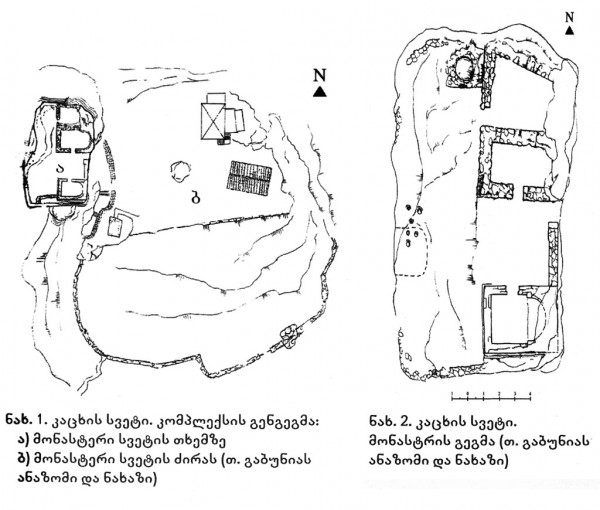 N
ა
ბ
N
ნახ. 1. კაცხის სვეტი. კომპლექსის გენგეგმა:
ა) მონასტერი სვეტის თხემზე
ბ) მონასტერი სვეტის ძირას (თ. გაბუნიას
ანაზომი და ნახაზი)
ნახ. 2. კაცხის სვეტი.
მონასტრის გეგმა (თ. გაბუნიას
ანაზომი და ნახაზი)